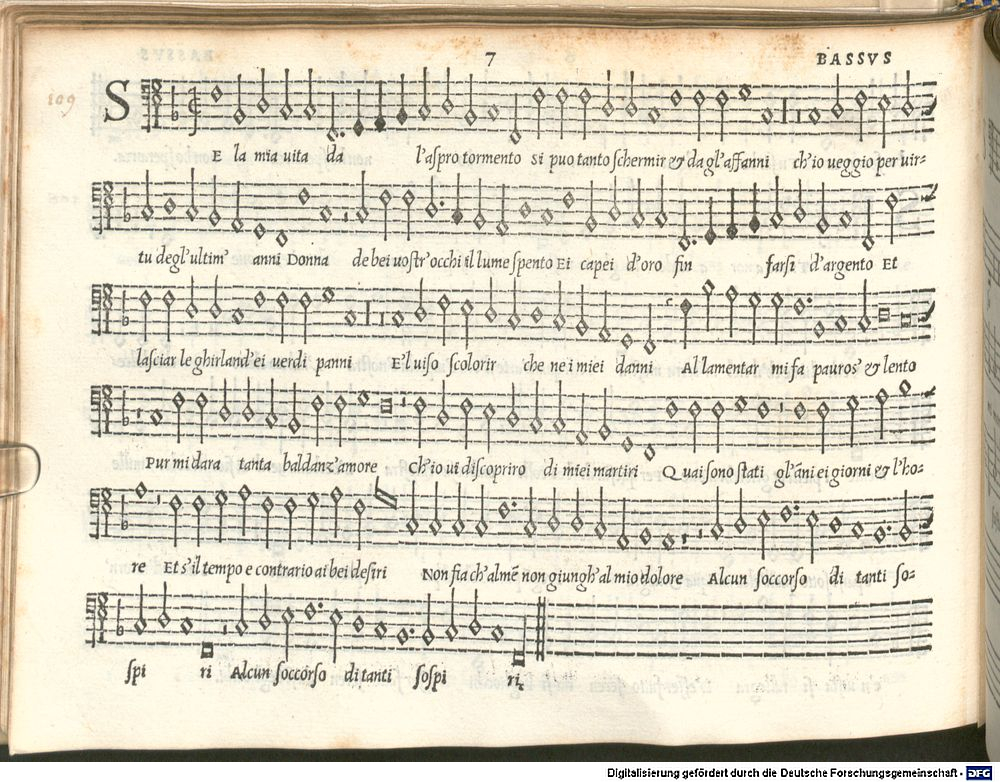 7 BASSVS
109
SE la mia uita da l'aspro tormento si puo tanto schermir & da gl'affanni ch'io ueggio per uir-
tu degl'ultim' anni Donna de bei uostr'occhi il lume spento Ei capei d'oro fin farsi d'argento Et
lasciar le ghirland'ei uerdi panni E'l uiso scolorir che ne i miei danni Al lamentar mi fa pauros' & lento
Pur mi dara tanta baldanz'amore Ch'io ui discopriro di miei martiri Quai sono stati gl'ãni ei giorni & l'ho-
re Et s'il tempo e contrario ai bei desiri Non fia ch'almẽ non giungh' al mio dolore Alcun soccorso di tanti so-
spi ri Alcun soccorso di tanti sospi ri.
Digitalisierung gefördert durch die Deutsche Forschungsgemeinschaft - DFG